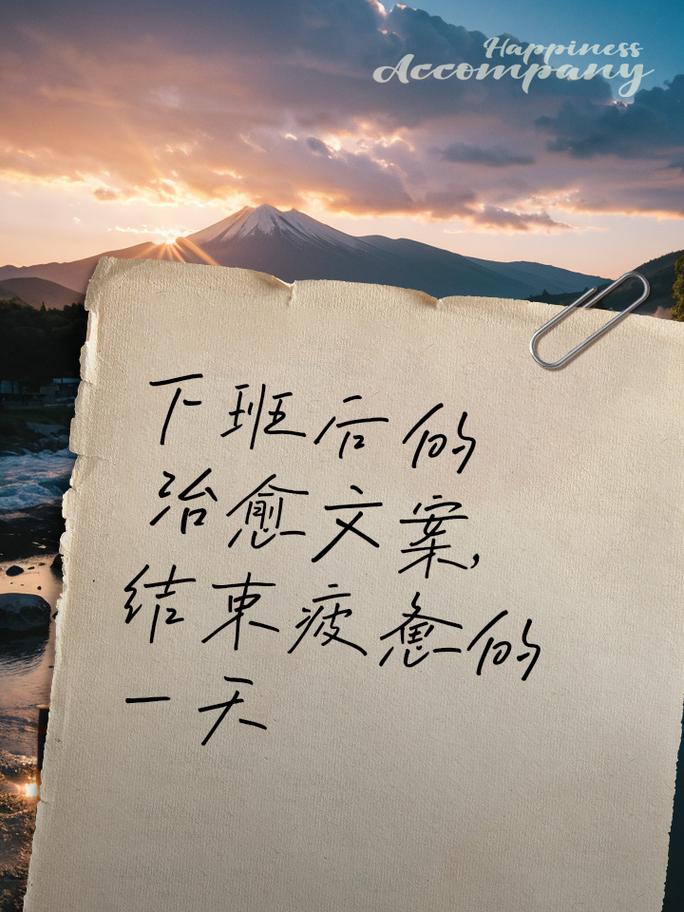 Happiness
Accompany
下班后的
治愈文案,
结束疲惫的
一天